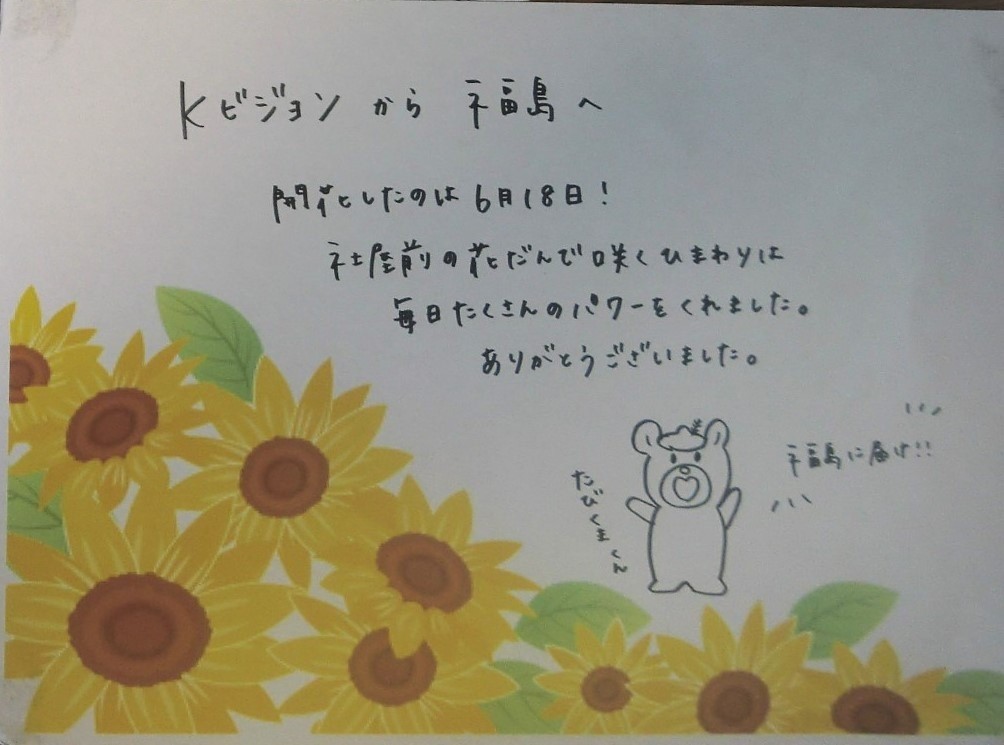 Kビジョンから 福島へ
開花したのは6月18日！
社屋前の花だんで咲くひまわりは
毎日たくさんのパワーをくれました。
ありがとうございました。
福島に届け!!
たびくまくん